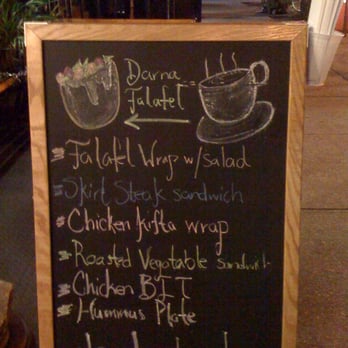 Darna
Falafel
Falafel Wrap w/salad
Skirt Steak sandwich
Chicken kifta wrap
Roasted Vegetable Sandwich
Chicken BIT
Hummus Plate